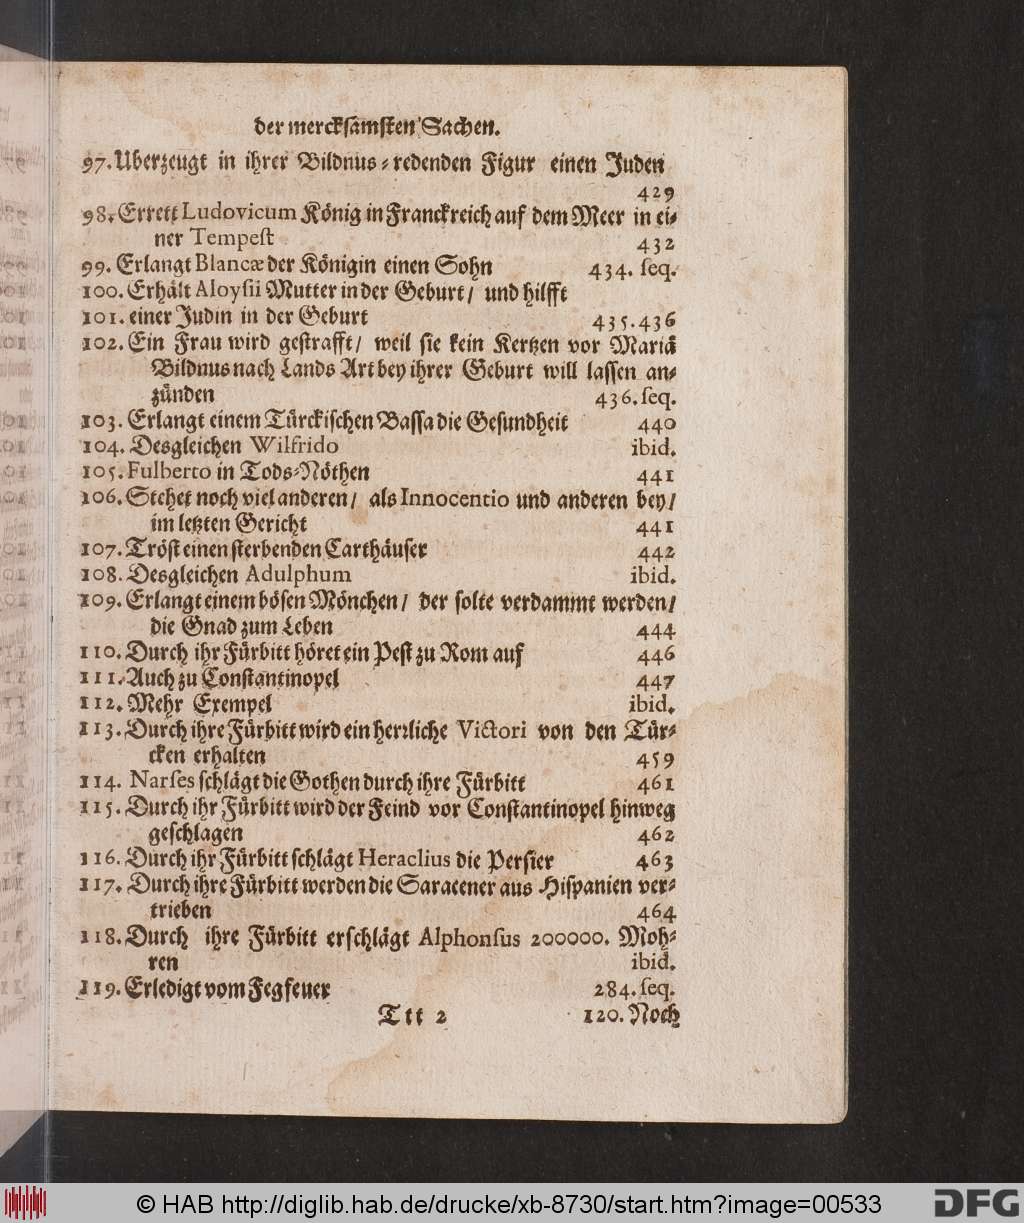 der mercksamsten Sachen.
97. Uberzeugt in ihrer Bildnus-redenden Figur einen Juden
429
98. Errett Ludovicum König in Franckreich auf dem Meer in ei-
ner Tempeſt 432
99. Erlangt Blancæ der Königin einen Sohn 434. ſeq.
100. Erhält Aloyſii Mutter in der Geburt / und hilfft
101. einer Judin in der Geburt 435. 436
102. Ein Frau wird gestrafft / weil sie kein Kertzen vor Mariä
Bildnus nach Lands Art bey ihrer Geburt will lassen an-
zünden 436. ſeq.
103. Erlangt einem Türckischen Bassa die Gesundheit 440
104. Desgleichen Wilfrido ibid.
105. Fulberto in Tods-Nöthen 441
106. Stehet noch viel anderen / als Innocentio und anderen bey /
im letzten Gericht 441
107. Tröst einen sterbenden Carthäuser 442
108. Desgleichen Adulphum ibid.
109. Erlangt einem bösen Mönchen / der solte verdammt werden /
die Gnad zum Leben 444
110. Durch ihr Fürbitt höret ein Pest zu Rom auf 446
111. Auch zu Constantinopel 447
112. Mehr Exempel ibid.
113. Durch ihre Fürbitt wird ein herrliche Victori von den Tür-
cken erhalten 459
114. Narſes schlägt die Gothen durch ihre Fürbitt 461
115. Durch ihr Fürbitt wird der Feind vor Constantinopel hinweg
geschlagen 462
116. Durch ihr Fürbitt schlägt Heraclius die Persier 463
117. Durch ihre Fürbitt werden die Saracener aus Hispanien ver-
trieben 464
118. Durch ihre Fürbitt erschlägt Alphonſus 200000. Moh-
ren ibid.
119. Erledigt vom Fegfeuer 284. ſeq.
Ttt 2 120. Noch
© HAB http://diglib.hab.de/drucke/xb-8730/start.htm?image=00533
DFG